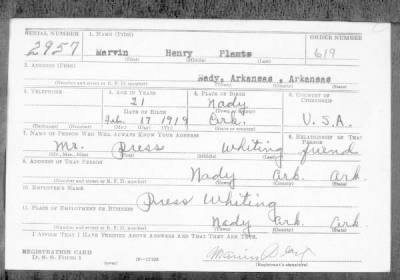 SERIAL NUMBER 1. NAME (Print) ORDER NUMBER
2957 Marvin Henry Plants 619
(First) (Middle) (Last)
2. ADDRESS (Print)
Nady, Arkansas , Arkansas
(Number and street or R. F. D. number) (Town) (County) (State)
3. TELEPHONE 4. AGE IN YEARS 5. PLACE OF BIRTH 6. COUNTRY OF CITIZENSHIP
21 Nady
DATE OF BIRTH (Town or county)
Feb. 17 1919 Ark. U.S.A.
(Exchange) (Number) (Mo.) (Day) (Yr.) (State or country)
7. NAME OF PERSON WHO WILL ALWAYS KNOW YOUR ADDRESS 8. RELATIONSHIP OF THAT PERSON
Mr. Press Whiting friend
(Mr., Mrs., Miss) (First) (Middle) (Last)
9. ADDRESS OF THAT PERSON
Nady Ark. Ark.
(Number and street or R. F. D. number) (Town) (County) (State)
10. EMPLOYER'S NAME
Press Whiting
11. PLACE OF EMPLOYMENT OR BUSINESS
Nady Ark Ark
(Number and street or R. F. D. number) (Town) (County) (State)
I AFFIRM THAT I HAVE VERIFIED ABOVE ANSWERS AND THAT THEY ARE TRUE.
REGISTRATION CARD
D. S. S. FORM 1 (over) (Registrant's signature)